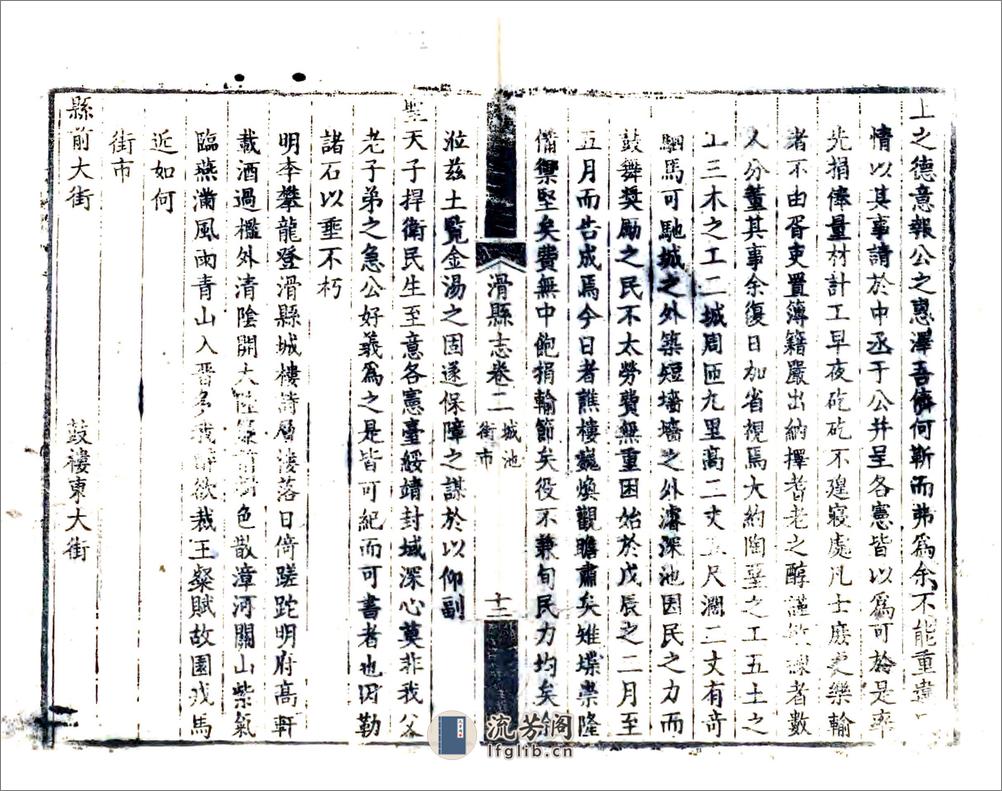 上之德意報公之惠澤吾儕何靳而弗爲余不能重違
情以其事請於中丞于公并呈各憲皆以爲可於是率
先捐俸量材計工早夜矻矻不遑寢處凡士庶吏樂輸
者不由胥吏置簿籍嚴出納擇耆老之醇謹者數
人分董其事余復日加省視焉大約陶堊之工五土之
工三木之工二城周匝九里高二丈五尺濶二丈有奇
駟馬可馳城之外築短墻墻之外濬深池因民之力而
鼓舞奬勵之民不太勞費無重困始於戊辰之二月至
五月而告成焉今日者譙樓巍煥觀瞻肅矣雉堞崇隆
備禦堅矣費無中飽捐輸節矣役不兼旬民力均矣
滑縣志卷二
城池
街市
十二
涖茲土覧金湯之固遂保障之謀於以仰副
聖天子捍衛民生至意各憲臺綏靖封域深心莫非我父
老子弟之急公好義爲之是皆可紀而可書者也因勒
諸石以垂不朽
明李攀龍登滑縣城樓詩層樓落日倚蹉跎明府高軒
載酒過檻外清陰開大陸樽前樹色散漳河關山紫氣
臨燕滿風雨青山入晋多我醉欲裁王粲賦故園戎馬
近如何
街市
縣前大街
鼓樓東大街
流芳阁
lfglib.cn